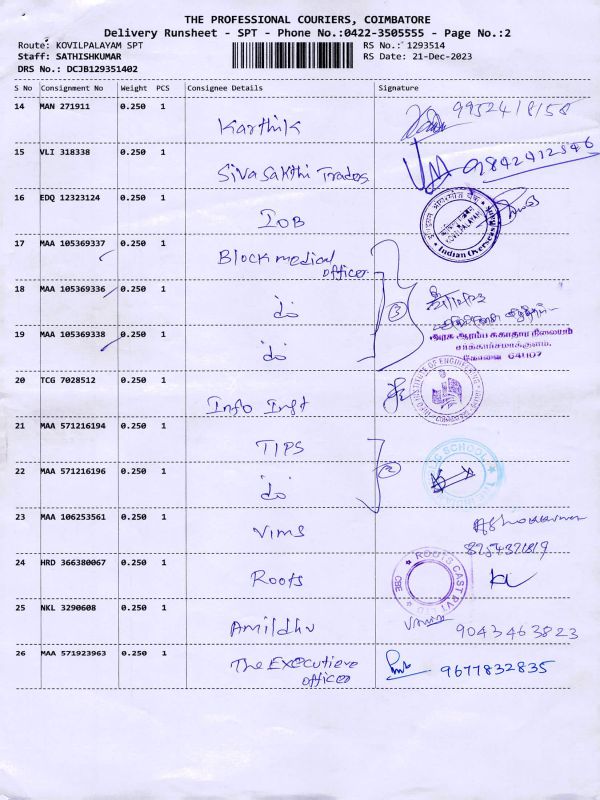 THE PROFESSIONAL COURIERS, COIMBATORE
Delivery Runsheet - SPT - Phone No.:0422-3505555 - Page No.:2
Route: KOVILPALAYAM SPT RS No.: 1293514
Staff: SATHISHKUMAR RS Date: 21-Dec-2023
DRS No.: DCJB129351402
S No Consignment No Weight PCS Consignee Details Signature
14 MAN 271911 0.250 1 Karthik 9952418158
15 VLI 318338 0.250 1 Siva Sakthi Trades 9842412546
16 EDQ 12323124 0.250 1 IOB Indian Overseas
17 MAA 105369337 0.250 1 Block medical officer
18 MAA 105369336 0.250 1 do 3
19 MAA 105369338 0.250 1 do
அரசு ஆரம்ப சுகாதார நிலையம்
சர்க்கார்சாமக்குளம்,
20 TCG 7028512 0.250 1 Info Inst
21 MAA 571216194 0.250 1 TIPS
22 MAA 571216196 0.250 1 do 2 SCHOOL
23 MAA 106253561 0.250 1 Vims
24 HRD 366380067 0.250 1 Roots ROOTS CAST PVT LTD CBE
25 NKL 3290608 0.250 1 Amildhu 9043463823
26 MAA 571923963 0.250 1 The Executieve officer 9677832835